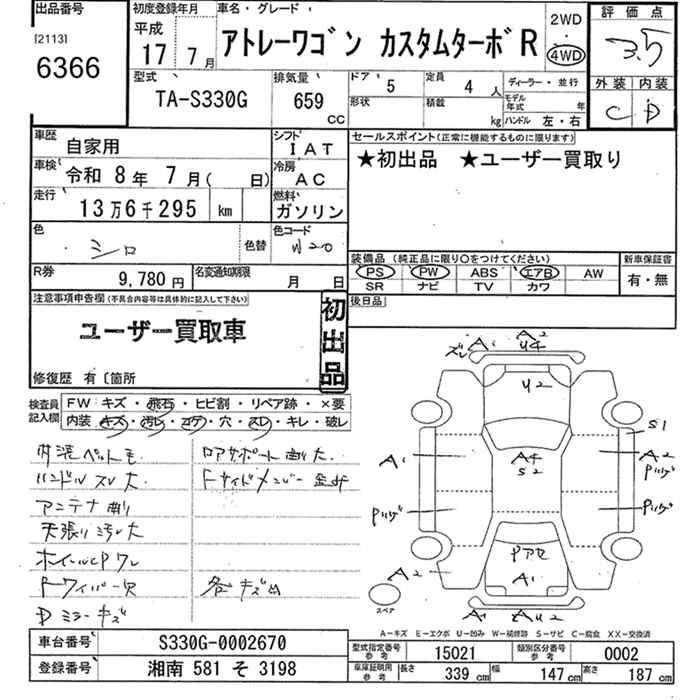 出品番号
[2113]
6366
初度登録年月
平成
17年 7月
車名・グレード
アトレーワゴン カスタムターボR
2WD
・
4WD
評価点
3.5
外装 内装
C D
型式
TA-S330G
排気量
659 cc
ドア
5
形状
定員
4人
積載
kg
ディーラー・並行
モデル年式 年
ハンドル 左・右
車歴
自家用
シフト
IAT
車検
令和 8年 7月( 日)
冷房
AC
走行
13万6千295 km
燃料
ガソリン
色
シロ
色替
色コード
W20
R券
9,780円
名変通知期限
月 日
セールスポイント(正常に機能するものに限ります)
★初出品 ★ユーザー買取り
装備品 (純正品に限り○をつけてください)
新車保証書
PS PW ABS エアB AW
SR ナビ TV カワ
有・無
後日品
注意事項申告欄(不具合内容等は具体的に記入して下さい)
ユーザー買取車
初出品
修復歴 有〔箇所
検査員記入欄
FW キズ・飛石・ヒビ割・リペア跡・×要
内装・キズ・汚レ・コゲ・穴・スレ・キレ・破レ
ハンドルスレ大
アンテナ
天張り汚レ大
各キズ凹
D ミラーキズ
ズレ A1 A2
U4
U2
A1
A4
S2
S1
A2
A2
A1
A1 AU2
スペア
A-キズ E-エクボ U-凹み W-補修跡 S-サビ C-腐食 XX-交換済
車台番号
S330G-0002670
登録番号
湘南 581 そ 3198
型式指定番号 参考
15021
類別区分番号 参考
0002
車庫証明用 参考
長さ 339 cm
幅 147 cm
高さ 187 cm